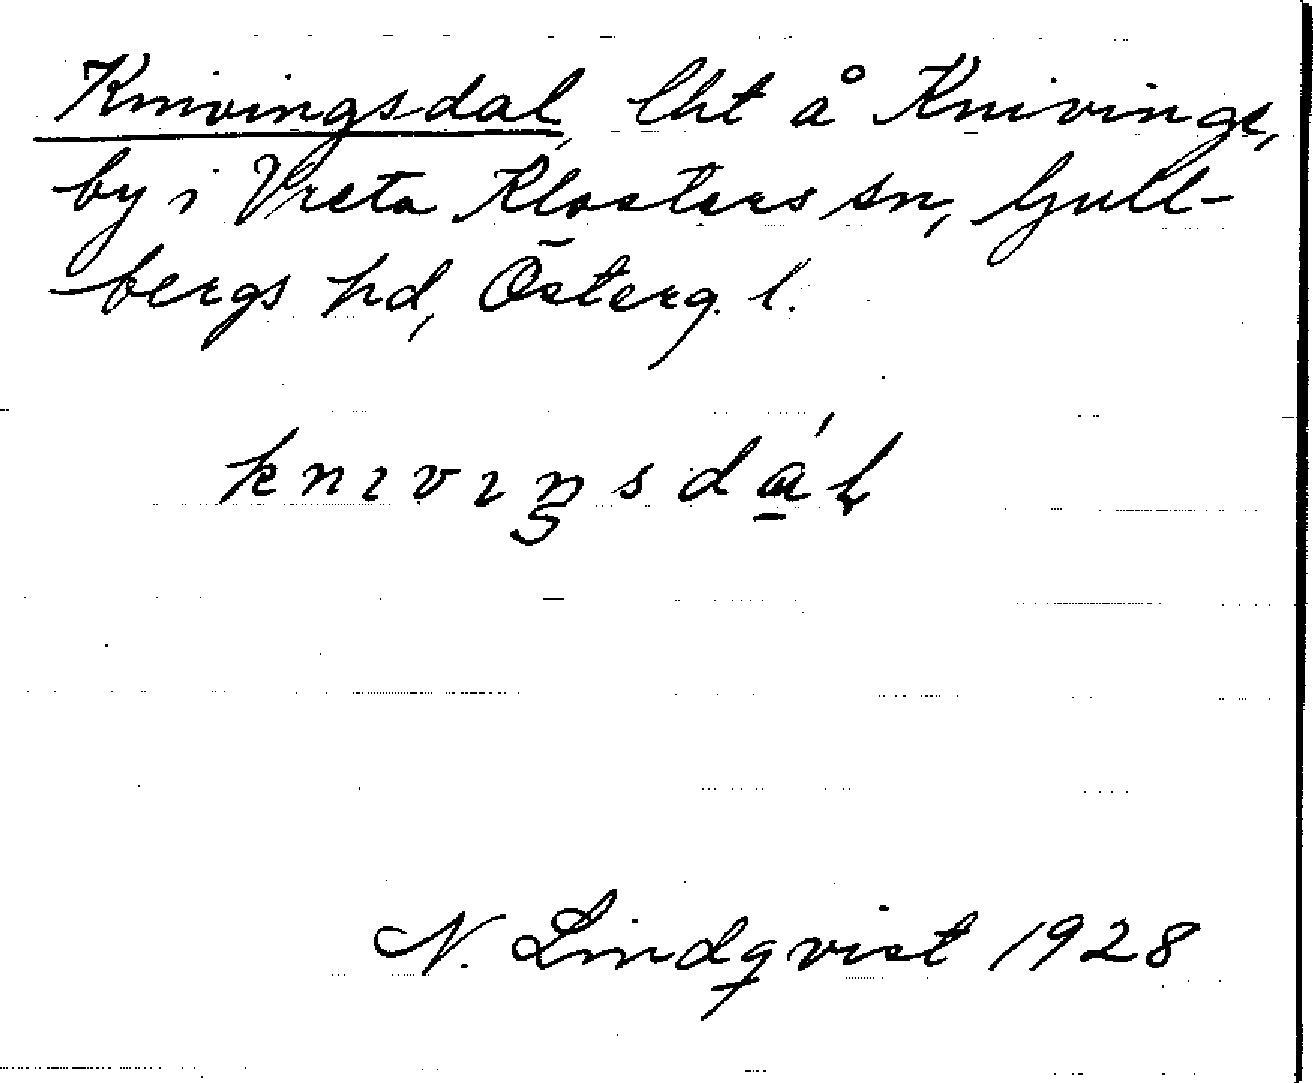 Knivingsdal, lht å Knivinge,
by i Vreta Klosters sn, Gull-
bergs hd, Österg. l.
knɩvɩŋsdá̲ɫ
N. Lindqvist 1928